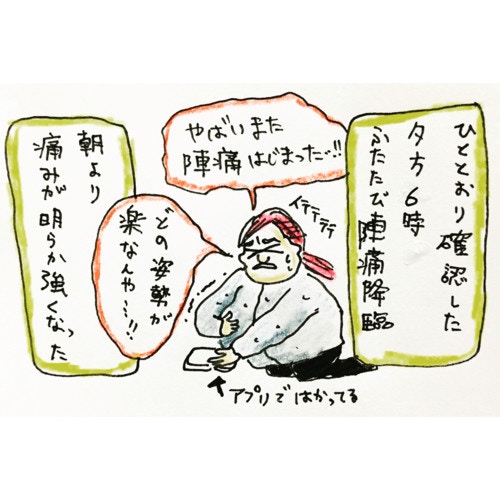 ひととおり確認した
夕方6時
ふたたび陣痛降臨
やばいまた
陣痛はじまったｯ…!!
イテテテテ
どの姿勢が
楽なんや…!!
アプリではかってる
朝より
痛みが明らか強くなった